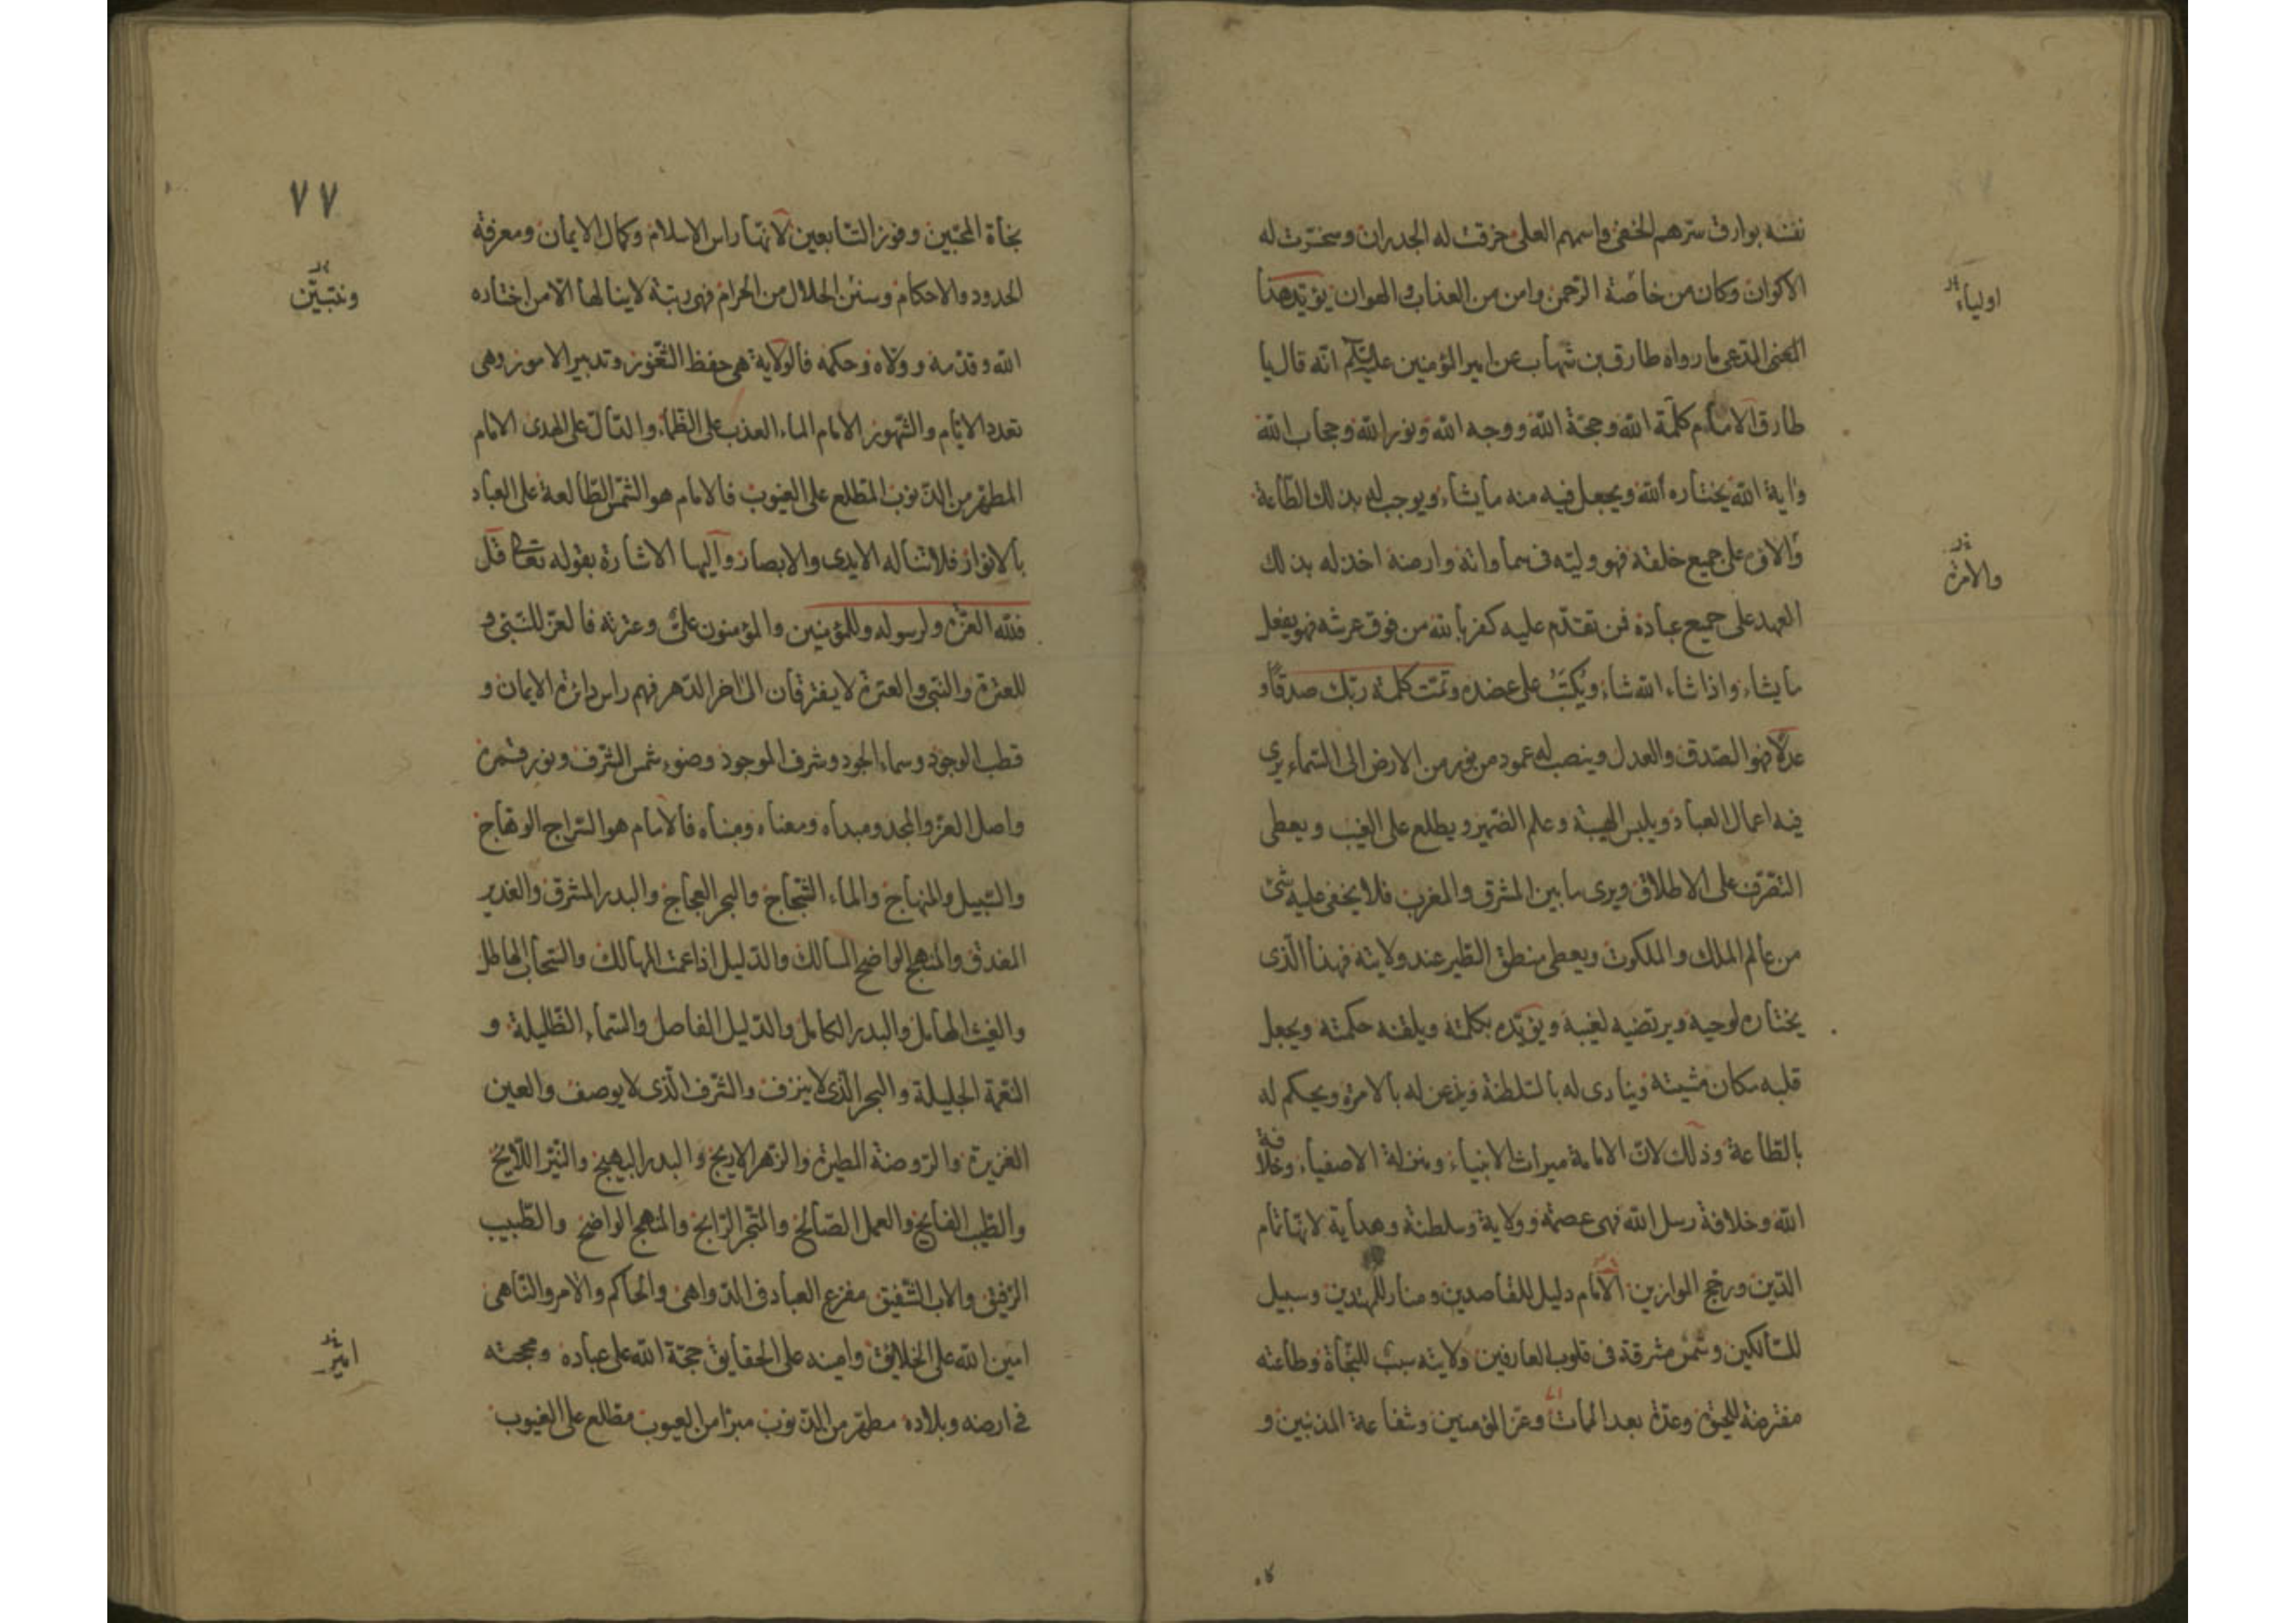 نفثه بوارق سرهم الخفي واسمهم العلي خرقت له الجدران وسخرت له
الاكوان وكان من خاصة الرحمن وامن من العذاب والهوان يؤيد هذا
اولياء
المعنى المدعى ما رواه طارق بن شهاب عن امير المؤمنين عليه السلام انه قال يا
طارق الامام كلمة الله وحجة الله ووجه الله ونور الله وحجاب الله
واية الله يختاره الله ويجعل فيه منه ما يشاء ويوجب له بذلك الطاعة
والامر على جميع خلقه فهو وليه في سماواته وارضه اخذ له بذلك
والامرة
العهد على جميع عباده فمن تقدم عليه كفر بالله من فوق عرشه فهو يفعل
ما يشاء واذا شاء الله شاء ويكتب على عضده وتمت كلمة ربك صدقا و
عدلا فهو الصدق والعدل وينصب له عمود من نور من الارض الى السماء يرى
فيه اعمال العباد ويلبس الهيبة وعلم الضمير ويطلع على الغيب ويعطى
التصرف على الاطلاق ويرى ما بين المشرق والمغرب فلا يخفى عليه شئ
من عالم الملك والملكوت ويعطى منطق الطير عند ولايته فهذا الذي
يختاره لوحيه ويرتضيه لغيبه ويؤيده بكلمته ويلقنه حكمته ويجعل
قلبه مكان مشيته وينادى له بالسلطنة ويذعن له بالامرة ويحكم له
بالطاعة وذلك لان الامامة ميراث الانبياء ومنزلة الاصفياء وخلافة
الله وخلافة رسل الله فهي عصمة وولاية وسلطنة وهداية لانها تمام
الدين ورجح الموازين الامام دليل للقاصدين ومنار للمهتدين وسبيل
للسالكين وشمس مشرقة في قلوب العارفين ولايته سبب للنجاة وطاعته
مفترضة للحيوة وعدة بعد الممات وعز المؤمنين وشفاعة المذنبين و
٧٧
نجاة المحبين وفوز التابعين لانها راس الاسلام وكمال الايمان ومعرفة
الحدود والاحكام وسنن الحلال من الحرام فهي رتبة لا ينالها الا من اختاره
وتبيين
الله وقدمه وولاه وحكمه فالولاية هي حفظ الثغور وتدبير الامور وهي
تعدد الايام والشهور الامام الماء العذب على الظماء والدال على الهدى الامام
المطهر من الذنوب المطلع على الغيوب فالامام هو الشمس الطالعة على العباد
بالانوار فلا تناله الايدي والابصار واليها الاشارة بقوله تعالى قل
فلله العزة ولرسوله وللمؤمنين والمؤمنون علي وعترته فالعز للنبي و
للعترة والنبي والعترة لا يفترقان الى اخر الدهر فهم راس دائرة الايمان و
قطب الوجود وسماء الجود وشرف الموجود وضوء شمس الشرف ونور قمره
واصل العز والمجد ومبداه ومعناه ومبناه فالامام هو السراج الوهاج
والسبيل والمنهاج والماء الثجاج والبحر العجاج والبدر المشرق والغدير
المغدق والمنهج الواضح المسالك والدليل اذا عمت المهالك والسحاب الهاطل
والغيث الهامل والبدر الكامل والدليل الفاصل والسماء الظليلة و
النعمة الجليلة والبحر الذي لا ينزف والشرف الذي لا يوصف والعين
الغزيرة والروضة المطيرة والزهر الاريج والبدر البهيج والنير اللايح
والطيب الفايح والعمل الصالح والمتجر الرابح والمنهج الواضح والطبيب
الرفيق والاب الشفيق مفزع العباد في الدواهي والحاكم والامر والناهي
امين الله على الخلائق وامينه على الحقايق حجة الله على عباده ومحجته
امير
في ارضه وبلاده مطهر من الذنوب مبرا من العيوب مطلع على الغيوب